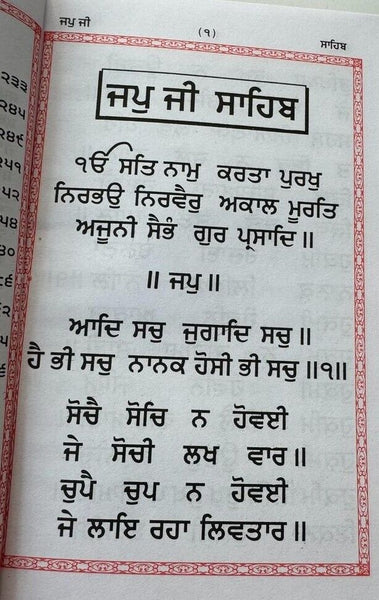 ਜਪੁ ਜੀ
(੧)
ਸਾਹਿਬ
ਜਪੁ ਜੀ ਸਾਹਿਬ
ੴ ਸਤਿ ਨਾਮੁ ਕਰਤਾ ਪੁਰਖੁ
ਨਿਰਭਉ ਨਿਰਵੈਰੁ ਅਕਾਲ ਮੂਰਤਿ
ਅਜੂਨੀ ਸੈਭੰ ਗੁਰ ਪ੍ਰਸਾਦਿ॥
॥ ਜਪੁ॥
ਆਦਿ ਸਚੁ ਜੁਗਾਦਿ ਸਚੁ॥
ਹੈ ਭੀ ਸਚੁ ਨਾਨਕ ਹੋਸੀ ਭੀ ਸਚੁ॥੧॥
ਸੋਚੈ ਸੋਚਿ ਨ ਹੋਵਈ
ਜੇ ਸੋਚੀ ਲਖ ਵਾਰ॥
ਚੁਪੈ ਚੁਪ ਨ ਹੋਵਈ
ਜੇ ਲਾਇ ਰਹਾ ਲਿਵਤਾਰ॥
੨੩੩
੨੪੫